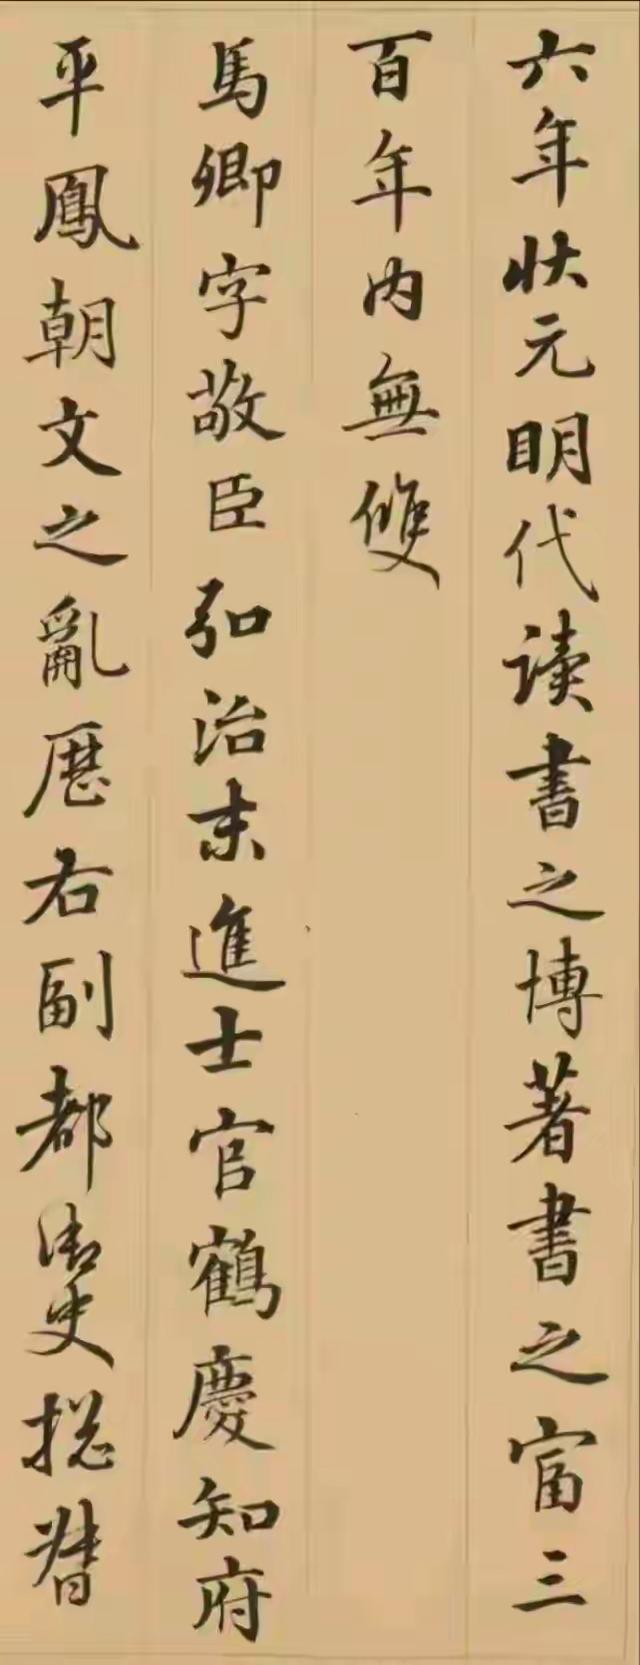 六年状元明代读書之博著書之富三
百年内無雙
馬卿字敬臣弘治末進士官鶴慶知府
平鳳朝文之亂歷右副都御史捴督